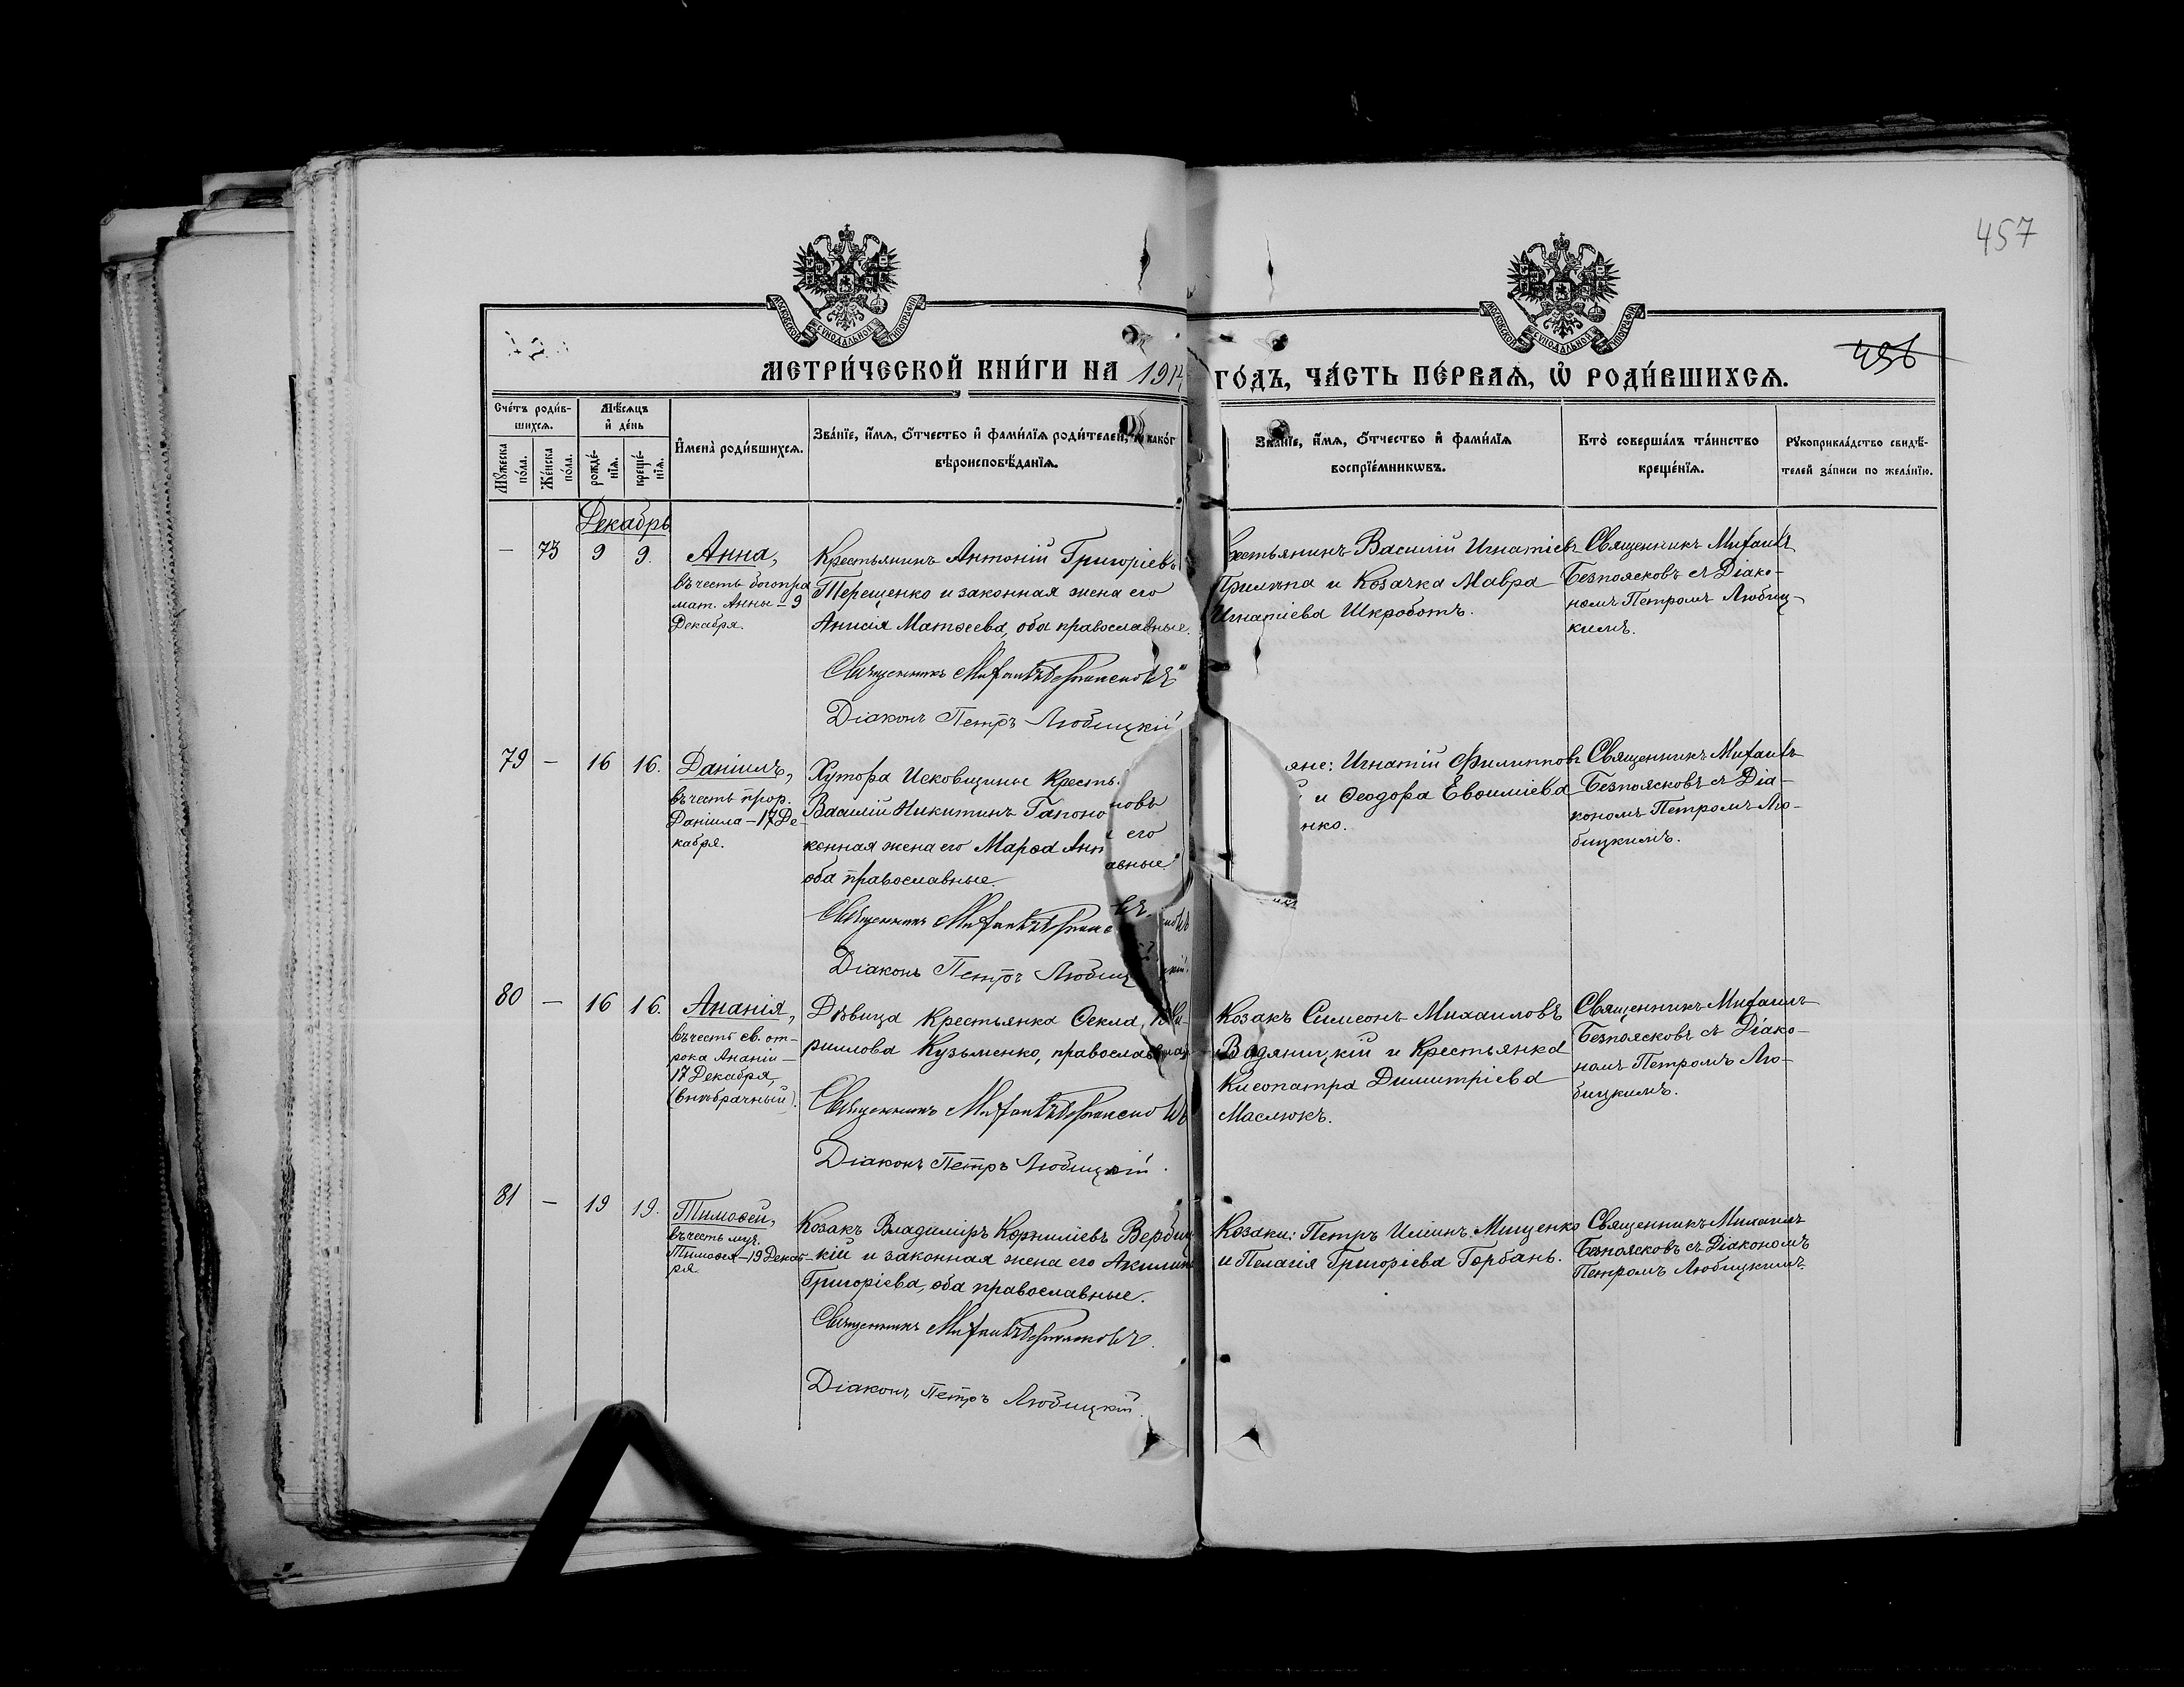 457
456
МОСКОВСКОЙ СѴНОДАЛЬНОЙ ТИПОГРАФІИ
МОСКОВСКОЙ СѴНОДАЛЬНОЙ ТИПОГРАФІИ
МЕТРИ́ЧЕСКОЙ КНИ́ГИ НА 191
ГО́ДЪ, ЧА́СТЬ ПЕ́РВАѦ, Ѽ РОДИ́ВШИХСѦ.
Сче́тъ роди́в-
шихсѧ.
Мѣ́сѧцъ
и҆ де́нь
Мꙋ́жеска
по́ла.
Же́нска
по́ла.
рожде́-
нїѧ.
креще́-
нїѧ.
И҆мена̀ роди́вшихсѧ.
Зва́нїе, и҆́мѧ, ѻ҆́тчество и҆ фами́лїѧ роди́телей, и҆ како́г
вѣроисповѣ́данїѧ.
Зва́нїе, и҆́мѧ, ѻ҆́тчество и҆ фами́лїѧ
воспрїе́мникѡвъ.
Кто̀ соверша́лъ та́инство
креще́нїѧ.
Рꙋкоприкла́дство свидѣ́-
телей за́писи по жела́нїю.
Декабрь
— 73 9 9.
Анна,
въ честь богопра
мат. Анны – 9
Декабря.
Крестьянинъ Антоній Григоріевъ
Терещенко и законная жена его
Анисія Матѳеева, оба православные.
Священникъ Михаилъ Безпоясковъ
Діаконъ Петръ Любицкій
естьянинъ Василій Игнатіевъ
и Козачка Мавра
Игнатіева Шкроботъ.
Священникъ Михаилъ
Безпоясковъ съ Діако-
номъ Петромъ Любиц-
кимъ.
79 — 16 16.
Даніилъ,
въ честь прор.
Даніила – 17 Де-
кабря.
Хутора Исковщины Кресть
Василій Никитинъ Гапоно
конная жена его Марѳа Анн
оба православные.
новъ
его
авные.
Священникъ Михаилъ
Діаконъ Петръ Любиц
яне: Игнатій Филипповъ
и Ѳеодора Евѳиміева
нко.
Священникъ Михаилъ
Безпоясковъ съ Діа-
кономъ Петромъ Лю-
бицкимъ.
80 — 16 16.
Ананія,
въ честь св. от-
рока Ананіи –
17 Декабря,
(внѣбрачный).
Дѣвица Крестьянка Ѳекла Ки-
риллова Кузьменко, православная
Священникъ Михаилъ Безпоясковъ
Діаконъ Петръ Любицкій.
Козакъ Симеонъ Михаиловъ
Водяницкій и Крестьянка
Клеопатра Димитріева
Маслюкъ.
Священникъ Михаилъ
Безпоясковъ съ Діако-
номъ Петромъ Лю-
бицкимъ.
81 — 19 19.
Тимоѳей,
въ честь муч.
Тимоѳея – 19 Декаб-
ря
Козакъ Владиміръ Корниліевъ Вербиц
кій и законная жена его Акилин
Григоріева, оба православные.
Священникъ Михаилъ Безпоясковъ.
Діаконъ Петръ Любицкій.
Козаки: Петръ Иліинъ Мищенко
и Пелагія Григоріева Горбань.
Священникъ Михаилъ
Безпоясковъ съ Діакономъ
Петромъ Любицкимъ.